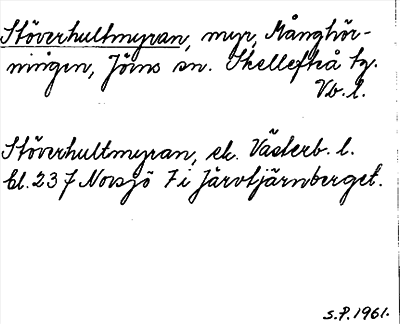 Stöverhultmyran, myr, Månghör-
ningen, Jörns sn. Skellefteå tg.
Vb. l.
Stöverhultmyran, ek. Västerb. l.
bl. 237 Norsjö 7 i Järvtjärnberget.
S.P. 1961.